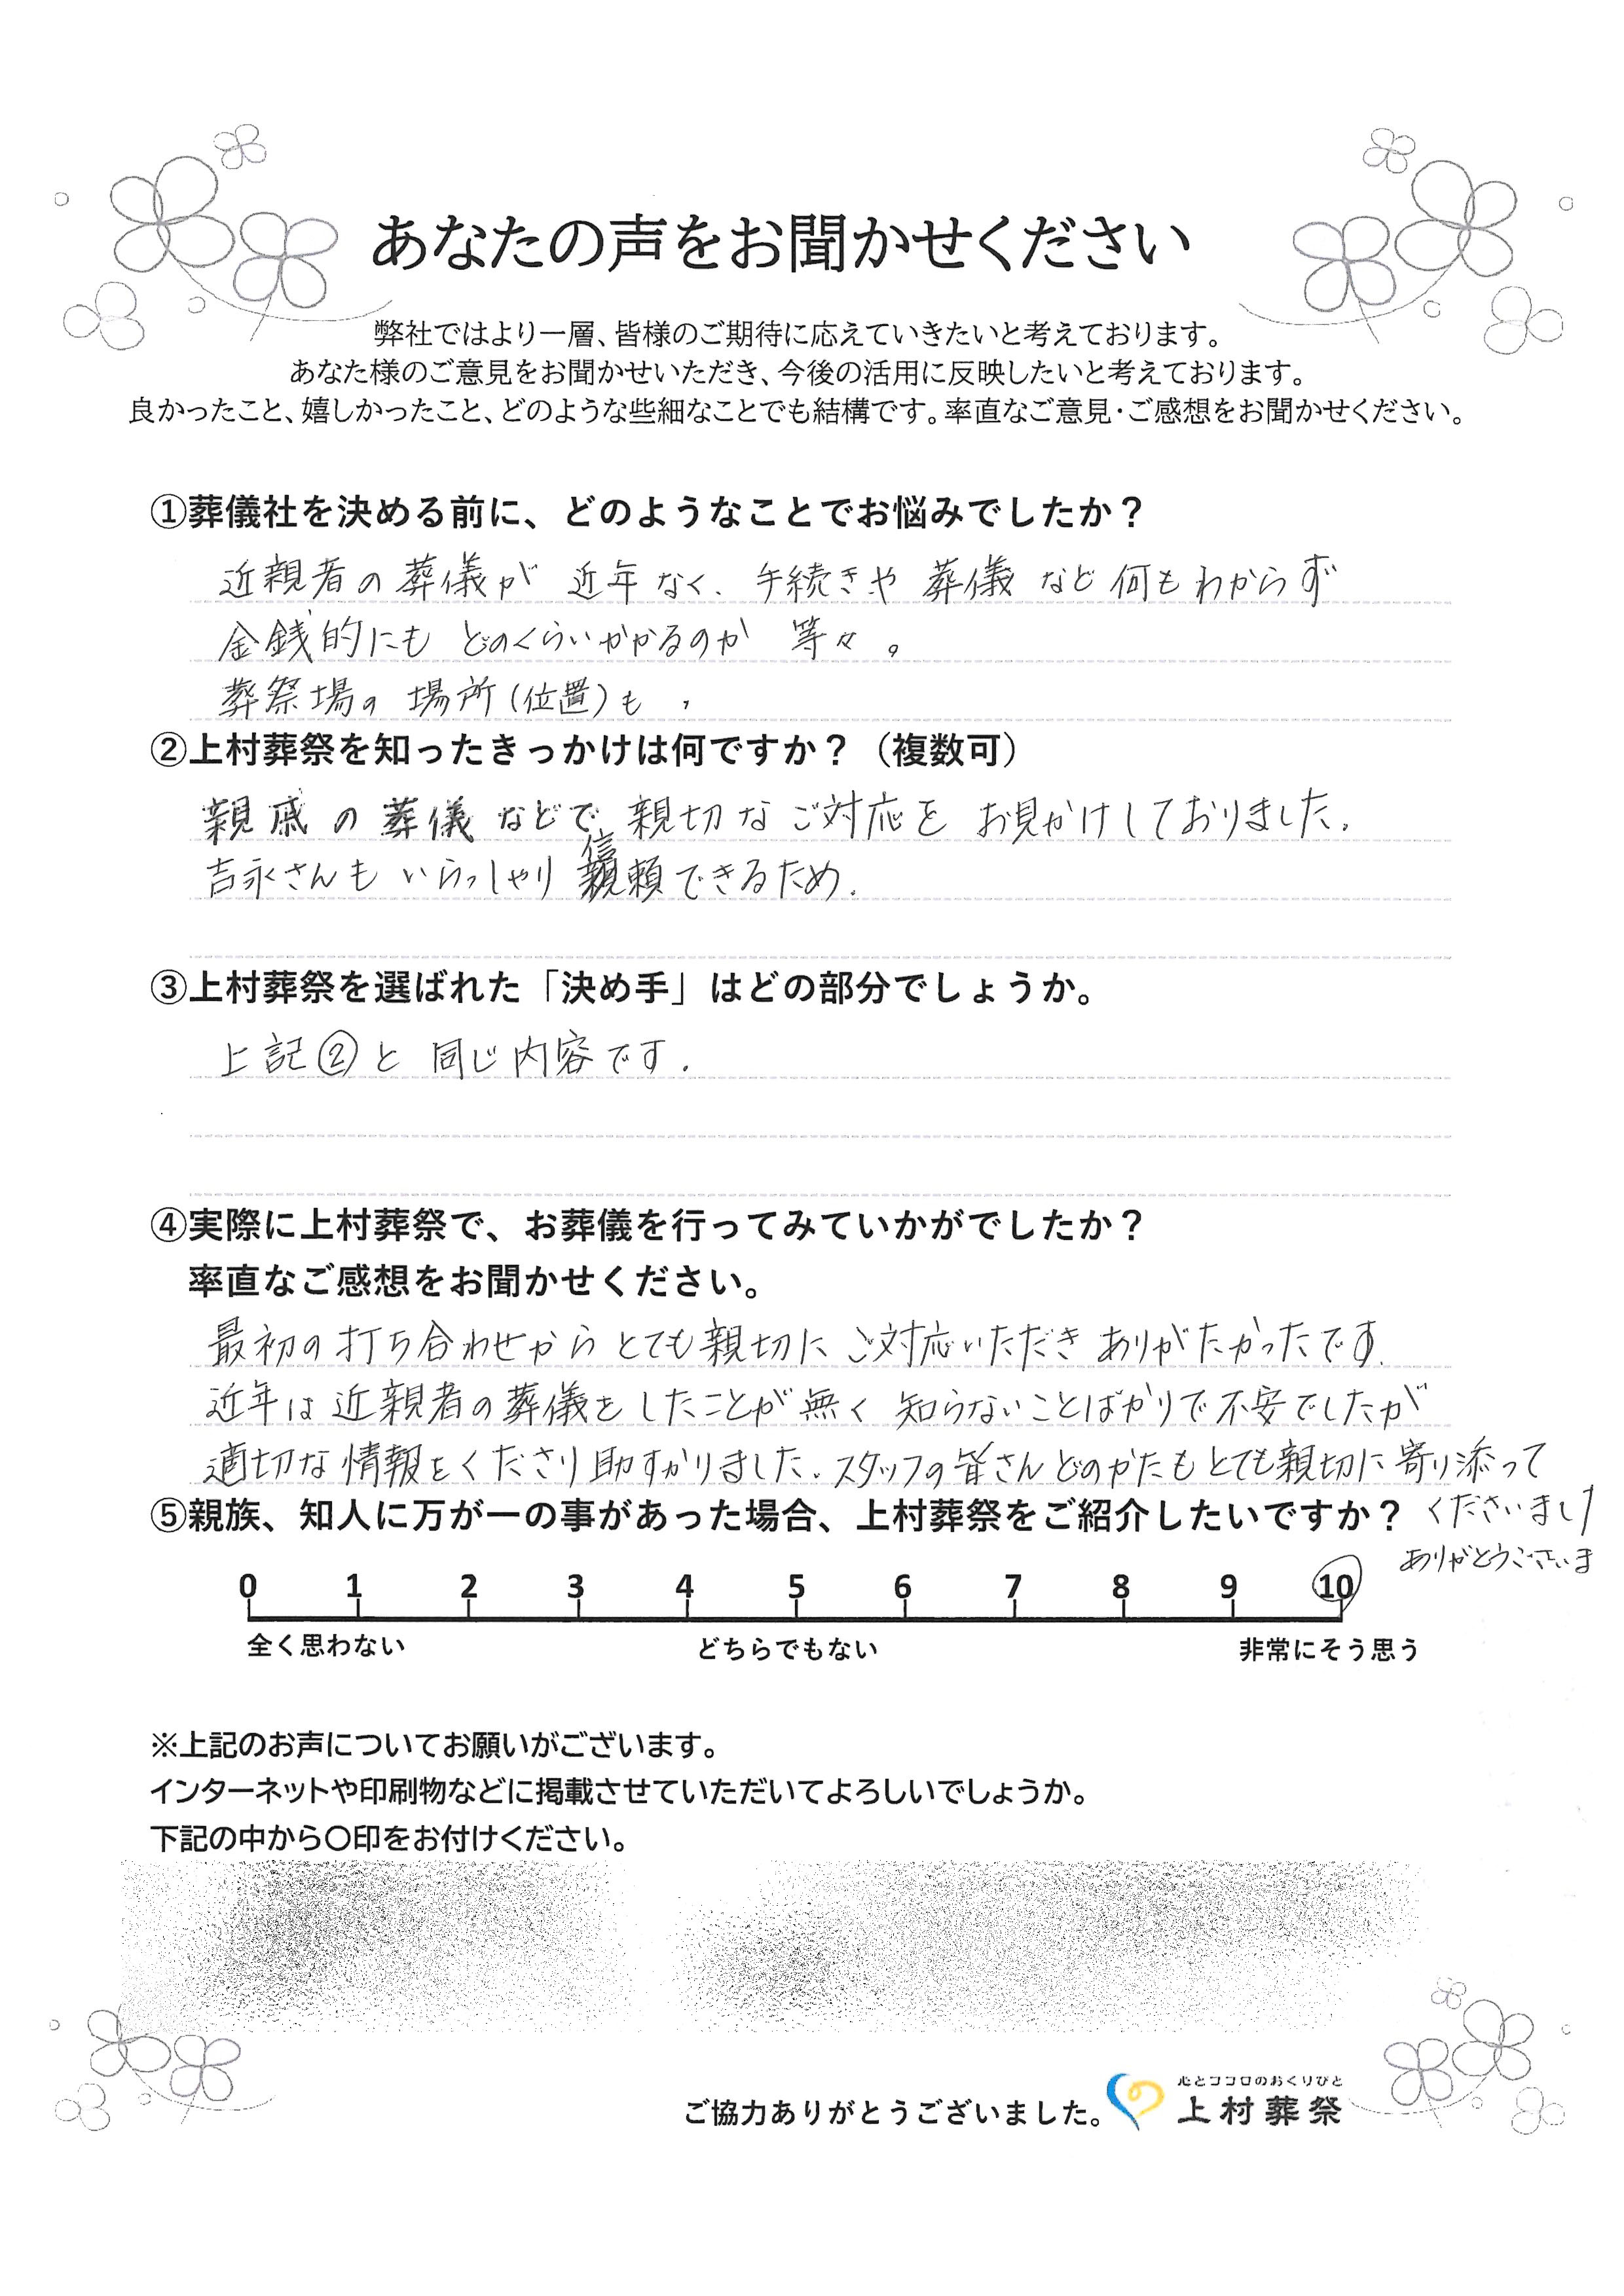 あなたの声をお聞かせください
弊社ではより一層、皆様のご期待に応えていきたいと考えております。
あなた様のご意見をお聞かせいただき、今後の活用に反映したいと考えております。
良かったこと、嬉しかったこと、どのような些細なことでも結構です。率直なご意見・ご感想をお聞かせください。
①葬儀社を決める前に、どのようなことでお悩みでしたか？
近親者の葬儀が 近年なく、手続きや 葬儀 など 何もわからず
金銭的にも どのくらいかかるのか 等々。
葬祭場の 場所(位置)も 、
②上村葬祭を知ったきっかけは何ですか？（複数可）
親戚の葬儀などで 親切なご対応を お見かけしておりました。
吉永さんも いらっしゃり 信頼できるため。
③上村葬祭を選ばれた「決め手」はどの部分でしょうか。
上記②と 同じ内容です.
④実際に上村葬祭で、お葬儀を行ってみていかがでしたか？
率直なご感想をお聞かせください。
最初の打ち合わせから とても親切に ご対応いただき ありがたかったです.
近年は近親者の葬儀をしたことが無く 知らないことばかりで不安でしたが
適切な情報をくださり助すかりました. スタッフの皆さんどのかたもとても親切に寄り添って
くださいまし
ありがとうございま
⑤親族、知人に万が一の事があった場合、上村葬祭をご紹介したいですか？
0 1 2 3 4 5 6 7 8 9 10
全く思わない どちらでもない 非常にそう思う
※上記のお声についてお願いがございます。
インターネットや印刷物などに掲載させていただいてよろしいでしょうか。
下記の中から〇印をお付けください。
心とココロのおくりびと
ご協力ありがとうございました。 上村葬祭